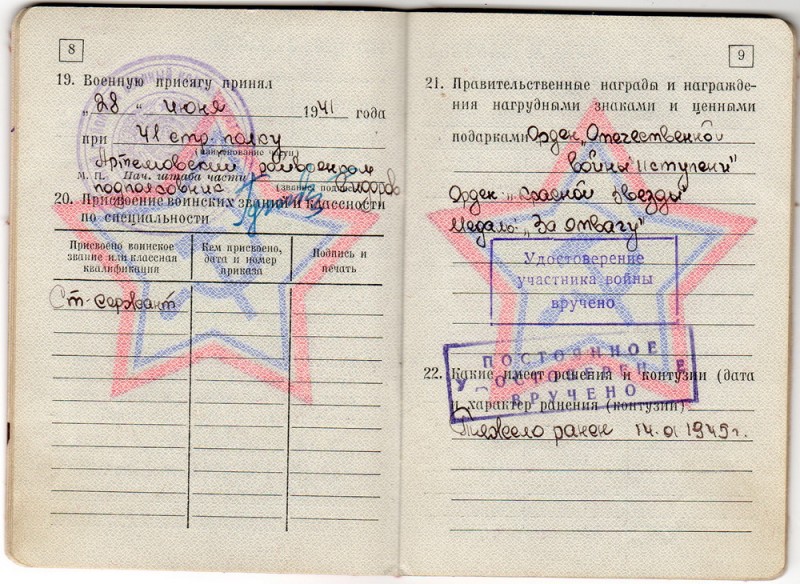 8
19. Военную присягу принял
„28“ июня 1941 года
при 41 стр. полку
(наименование части)
Артемовский райвоенком
М. П. Нач. штаба части
подполковник
(звание, подпись)
20. Присвоение воинских званий и классности
по специальности
Присвоено воинское
звание или классная
квалификация
Кем присвоено,
дата и номер
приказа
Подпись и
печать
Ст-сержант
9
21. Правительственные награды и награжде-
ния нагрудными знаками и ценными
подарками Орден „Отечественной
войны II ступени"
Орден „Красной Звезды"
Медаль: „За отвагу"
Удостоверение
участника войны
вручено
ПОСТОЯННОЕ
УДОСТОВЕРЕНИЕ
ВРУЧЕНО
22. Какие имеет ранения и контузии (дата
и характер ранения (контузии)
Тяжело ранен 14.01 1945 г.